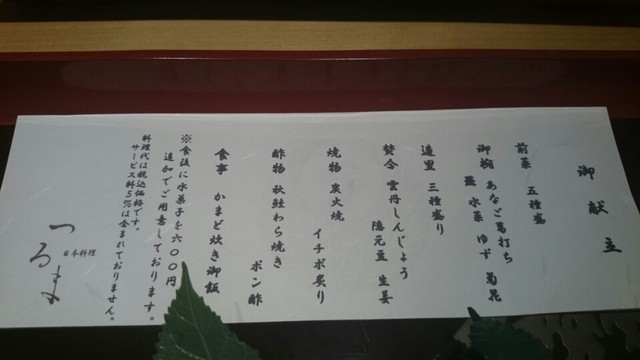 御献立
前菜 五種盛
御椀 あなご葛打ち
蕪 水菜 ゆず 菊花
造里 三種盛り
焚合 雲丹しんじょう
隠元豆 生姜
焼物 炭火焼
イチボ炙り
酢物 秋鮭わら焼き
ポン酢
食事 かまど炊き御飯
※食後に水菓子を六〇〇円
追加でご用意しております。
料理代は税込価格です。
サービス料5%は含まれておりません。
日本料理
つるま